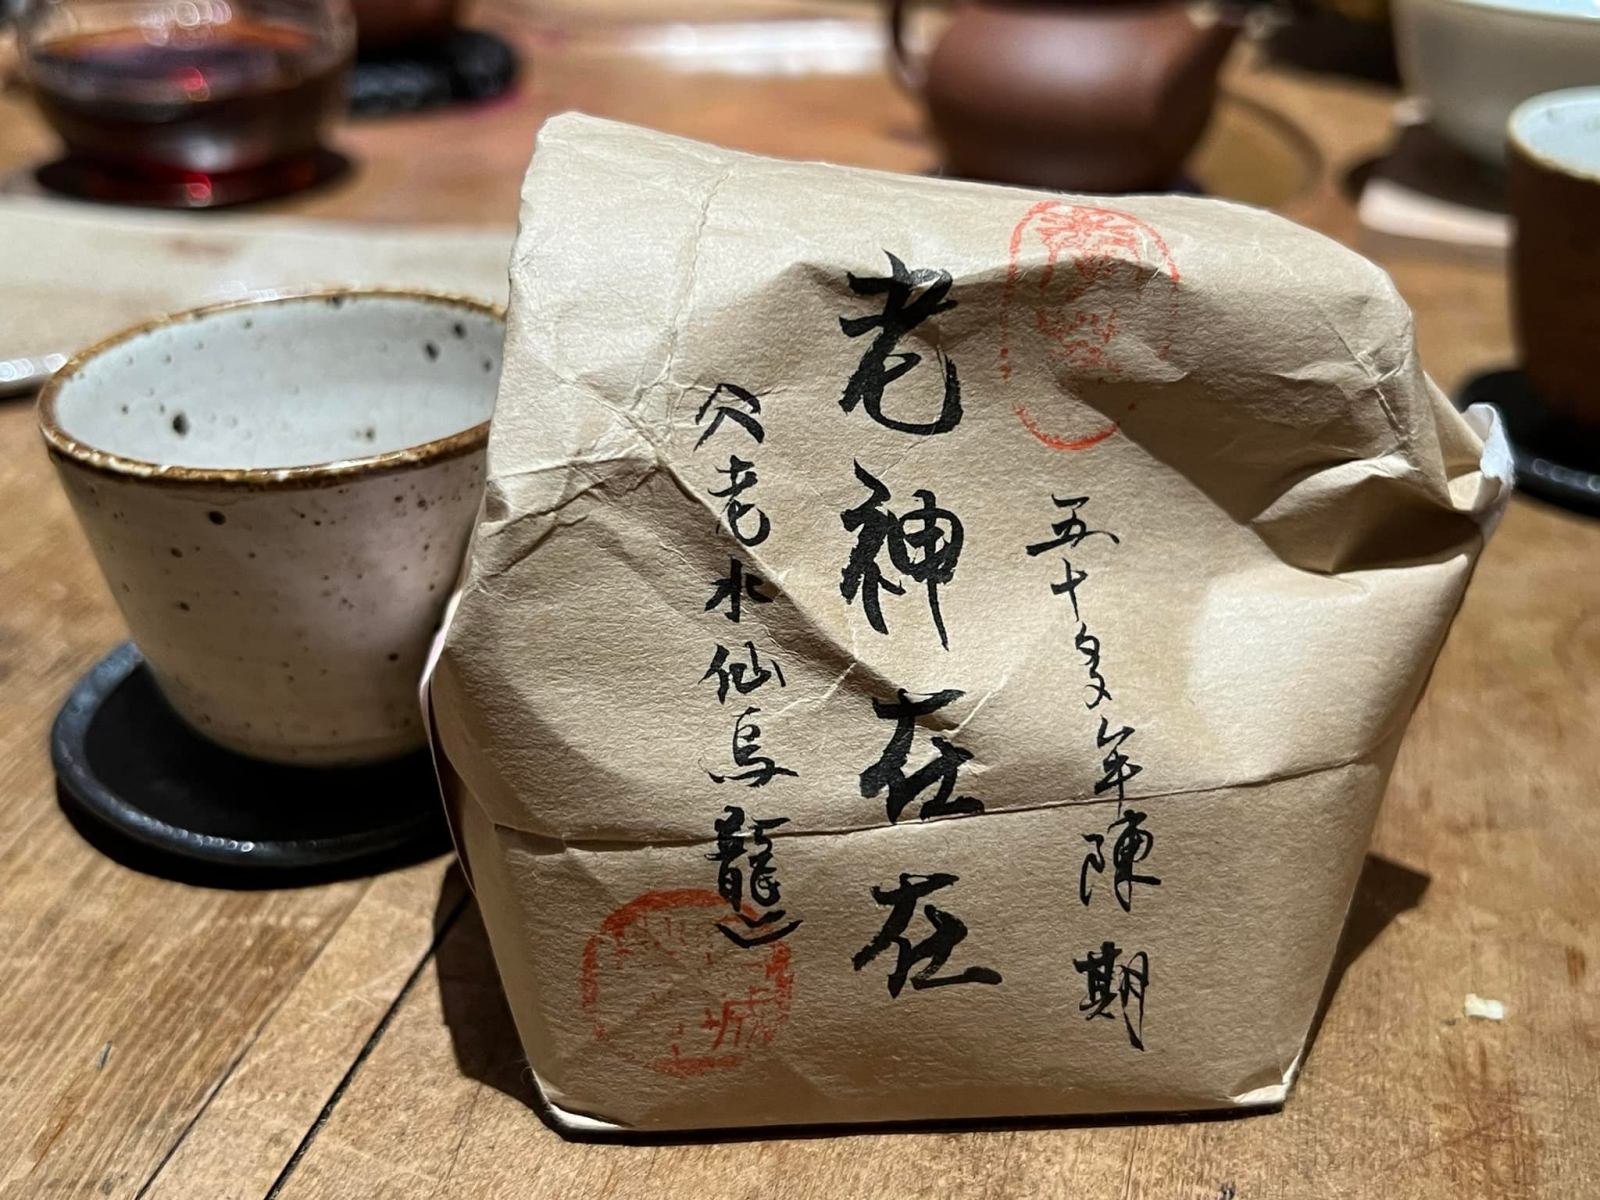 五十多年陳期
老神在在
穴老水仙烏龍